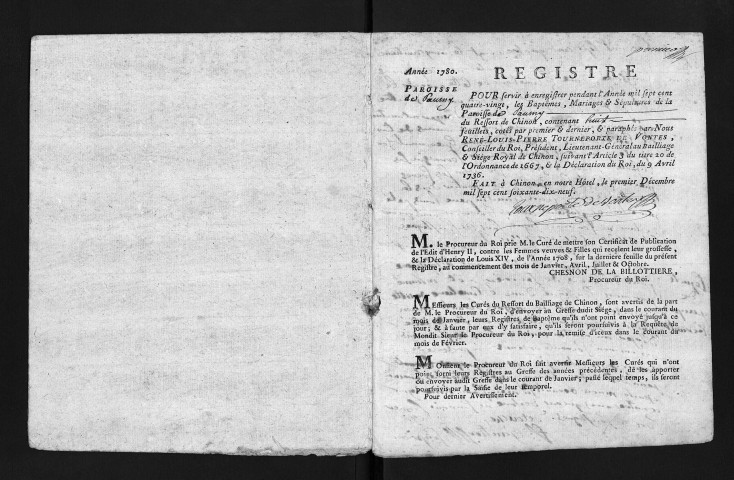 premier
Année 1780.
REGISTRE
PAROISSE
de Paulmy
POUR servir à enregistrer pendant l'Année mil sept cent
quatre-vingt, les Baptêmes, Mariages & Sépultures de la
Paroisse de Paulmy
du Ressort de Chinon, contenant huit
feuillets, cotés par premier & dernier, & paraphés par Nous
RENÉ-LOUIS-PIERRE TOURNEPORTE DE VONTES,
Conseiller du Roi, Président, Lieutenant-Général au Bailliage
& Siége Royal de Chinon, suivant l'Article 3 du titre 20 de
l'Ordonnance de 1667, & la Déclaration du Roi, du 9 Avril
1736.
FAIT à Chinon, en notre Hôtel, le premier Décembre
mil sept cent soixante-dix-neuf.
Tourneporte de Vontes
M. le Procureur du Roi prie M. le Curé de mettre son Certificat de Publication
de l'Edit d'Henry II, contre les Femmes veuves & Filles qui recelent leur grossesse,
& la Déclaration de Louis XIV, de l'Année 1708, sur la derniere feuille du présent
Registre, au commencement des mois de Janvier, Avril, Juillet & Octobre.
CHESNON DE LA BILLOTTIERE,
Procureur du Roi.
MESSIEURS les Curés du Ressort du Bailliage de Chinon, sont avertis de la part
de M. le Procureur du Roi, d'envoyer au Greffe dudit Siége, dans le courant du
mois de Janvier, leurs Registres de Baptême qu'ils n'ont point envoyé jusqu'à ce
jour; & à faute par eux d'y satisfaire, qu'ils seront poursuivis à la Requête de
Mondit Sieur le Procureur du Roi, pour la remise d'iceux dans le courant du
mois de Février.
MONSIEUR le Procureur du Roi fait avertir Messieurs les Curés qui n'ont
point fourni leurs Registres au Greffe des années précédentes, de les apporter
ou envoyer audit Greffe dans le courant de Janvier; passé lequel temps, ils seront
poursuivis par la Saisie de leur temporel.
Pour dernier Avertissement.